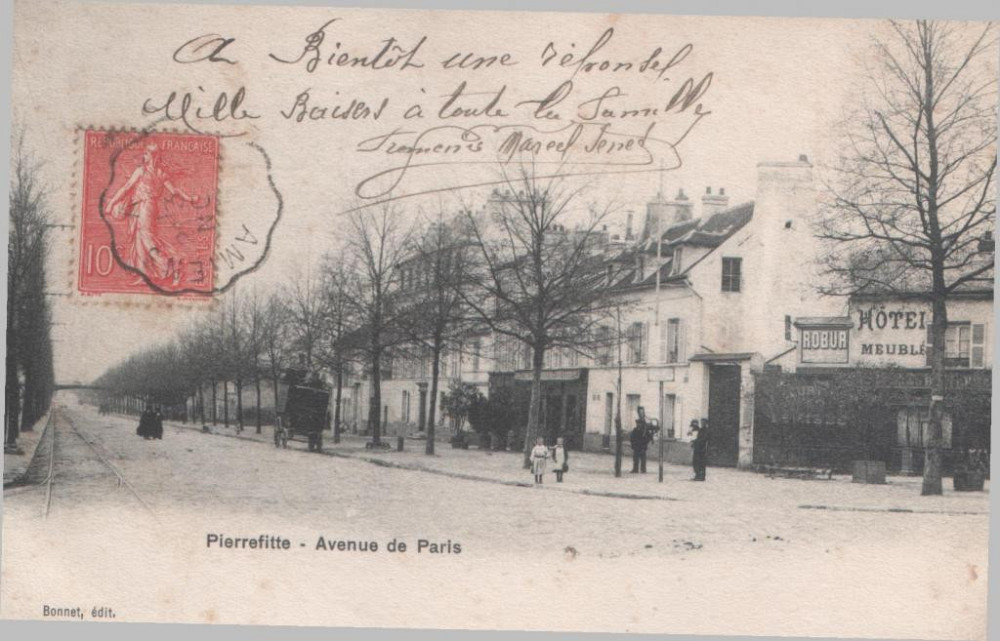 A Bientôt une réponse
Mille Baisers à toute la famille
Marcel
REPUBLIQUE FRANÇAISE
10
AMIENS
HÔTEL
MEUBLÉ
ROBUR
Pierrefitte - Avenue de Paris
Bonnet, édit.